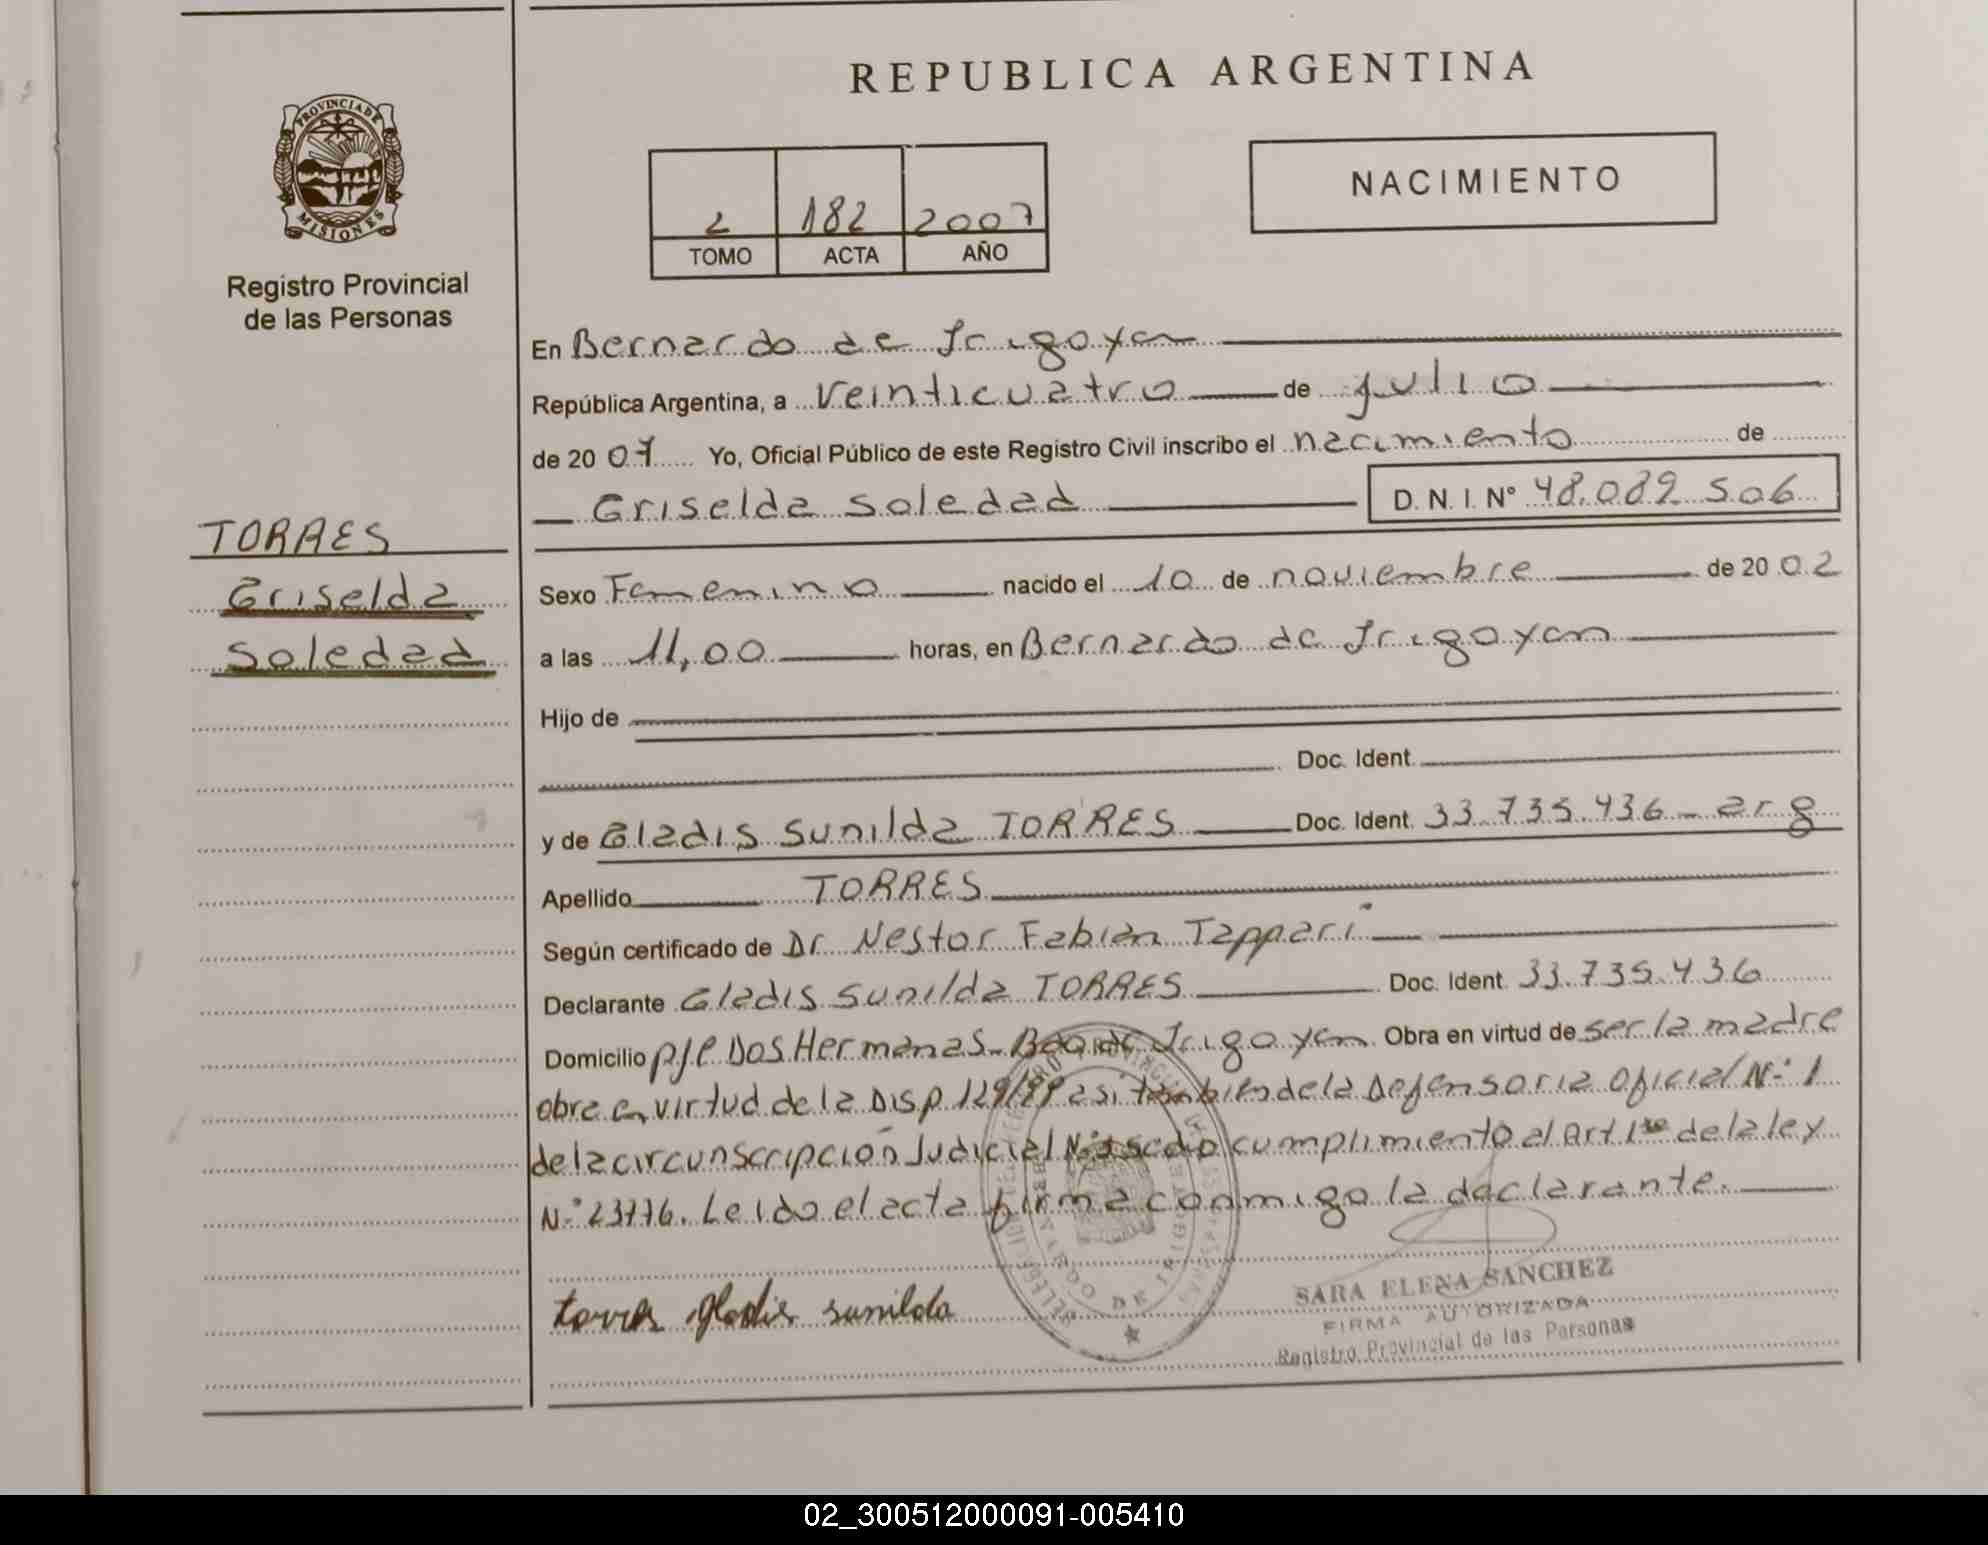 REPUBLICA ARGENTINA
PROVINCIA DE
MISIONES
Registro Provincial
de las Personas
2 182 2007
TOMO ACTA AÑO
NACIMIENTO
En Bernardo de Irigoyen
República Argentina, a veinticuatro de julio
de 2007 Yo, Oficial Público de este Registro Civil inscribo el nacimiento de
Griselda Soledad D.N.I. Nº 48.089.506
TORRES
Griselda
Soledad
Sexo Femenino nacido el 10 de noviembre de 2002
a las 11,00 horas, en Bernardo de Irigoyen
Hijo de
Doc. Ident.
y de Gladis Sunilda TORRES Doc. Ident. 33.735.436 - arg
Apellido TORRES
Según certificado de Dr Nestor Fabian Tappari
Declarante Gladis Sunilda TORRES Doc. Ident. 33.735.436
Domicilio pje Dos Hermanas - Bdo de Irigoyen Obra en virtud de ser la madre
obra en virtud de la Disp 129/99 asi tambien de la Defensoria Oficial Nº 1
de la circunscripción Judicial Nº se dio cumplimiento al Art 1ro de la ley
Nº 23776. Leido el acta firma conmigo la declarante.
torres gladis sunilda
SARA ELENA SANCHEZ
FIRMA AUTORIZADA
Registro Provincial de las Personas
02_300512000091-005410